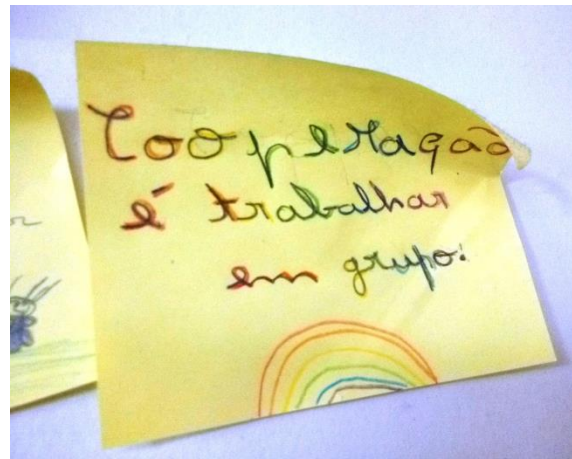 Cooperação
é trabalhar
em grupo.